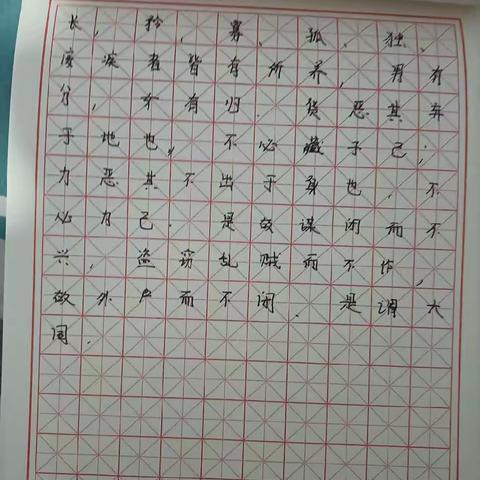 长，矜、寡、孤、独、
废疾者皆有所养，男有
分，女有归．货恶其弃
于地也，不必藏于己；
力恶其不出于身也，不
必为己．是故谋闭而不
兴，盗窃乱贼而不作，
故外户而不闭．是谓大
同．